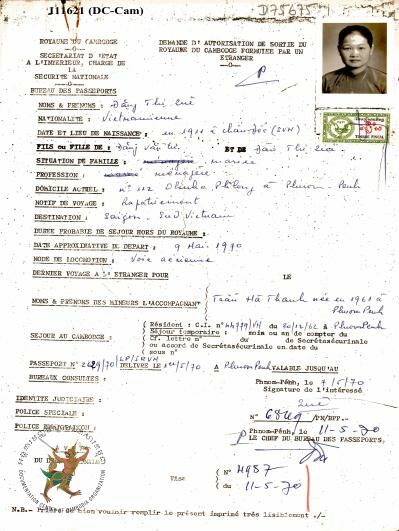 J11621 (DC-Cam)
D75675
ROYAUME DU CAMBODGE
SECRÉTARIAT D'ÉTAT
A L'INTERIEUR, CHARGE DE
LA
SÉCURITÉ NATIONALE
BUREAU DES PASSEPORTS
DEMANDE D'AUTORISATION DE SORTIE DU
ROYAUME DU CAMBODGE FORMULÉE PAR UN
ÉTRANGER
NOMS & PRENOMS : Đặng Thị
NATIONALITÉ : Vietnamienne
DATE ET LIEU DE NAISSANCE : en 1911 à Châu-Đốc (SVN)
FILS ou FILLE DE : Đặng văn ET DE Đào Thị
SITUATION DE FAMILLE : mariée
PROFESSION : ménagère
DOMICILE ACTUEL : n° 112 à Phnom-Penh
MOTIF DE VOYAGE : Rapatriement
DESTINATION : Saigon. Sud Vietnam
DURÉE PROBABLE DE SEJOUR HORS DU ROYAUME :
DATE APPROXIMATIVE DE DEPART : 9 Mai 1970
MODE DE LOCOMOTION : Voie aérienne
DERNIER VOYAGE A L'ETRANGER POUR LE
NOMS & PRENOMS DES MINEURS L'ACCOMPAGNANT Trần Hà Thanh née en 1961 à
Phnom Penh
SEJOUR AU CAMBODGE :
Résident : C.I. N° 44779/VH du 20/12/62 à Phnom Penh
Séjour temporaire : moin ou an de compter du
Cf. lettre n° du de Secrétasécurinale
ou accord de Secrétasécurinale en date du
sous n°
PASSEPORT N° 2629/70/LP/SRVN DÉLIVRÉ LE 1er/5/70 A Phnom Penh VALABLE JUSQU'AU
BUREAUX CONSULTÉS :
Phnom-Pênh, le 7/5/70
Signature de l'intéressé
IDENTITÉ JUDICIAIRE :
POLICE SPECIALE :
N° 6849 /PN/BPP.
Phnom-Pênh, le 11-5-70
P. LE CHEF DU BUREAU DES PASSEPORTS,
Visa
N° 4987
du 11-5-70
DOCUMENTATION CENTER OF CAMBODIA ORGANIZATION
N.B.- Prière de bien vouloir remplir le présent imprimé très lisiblement ./-